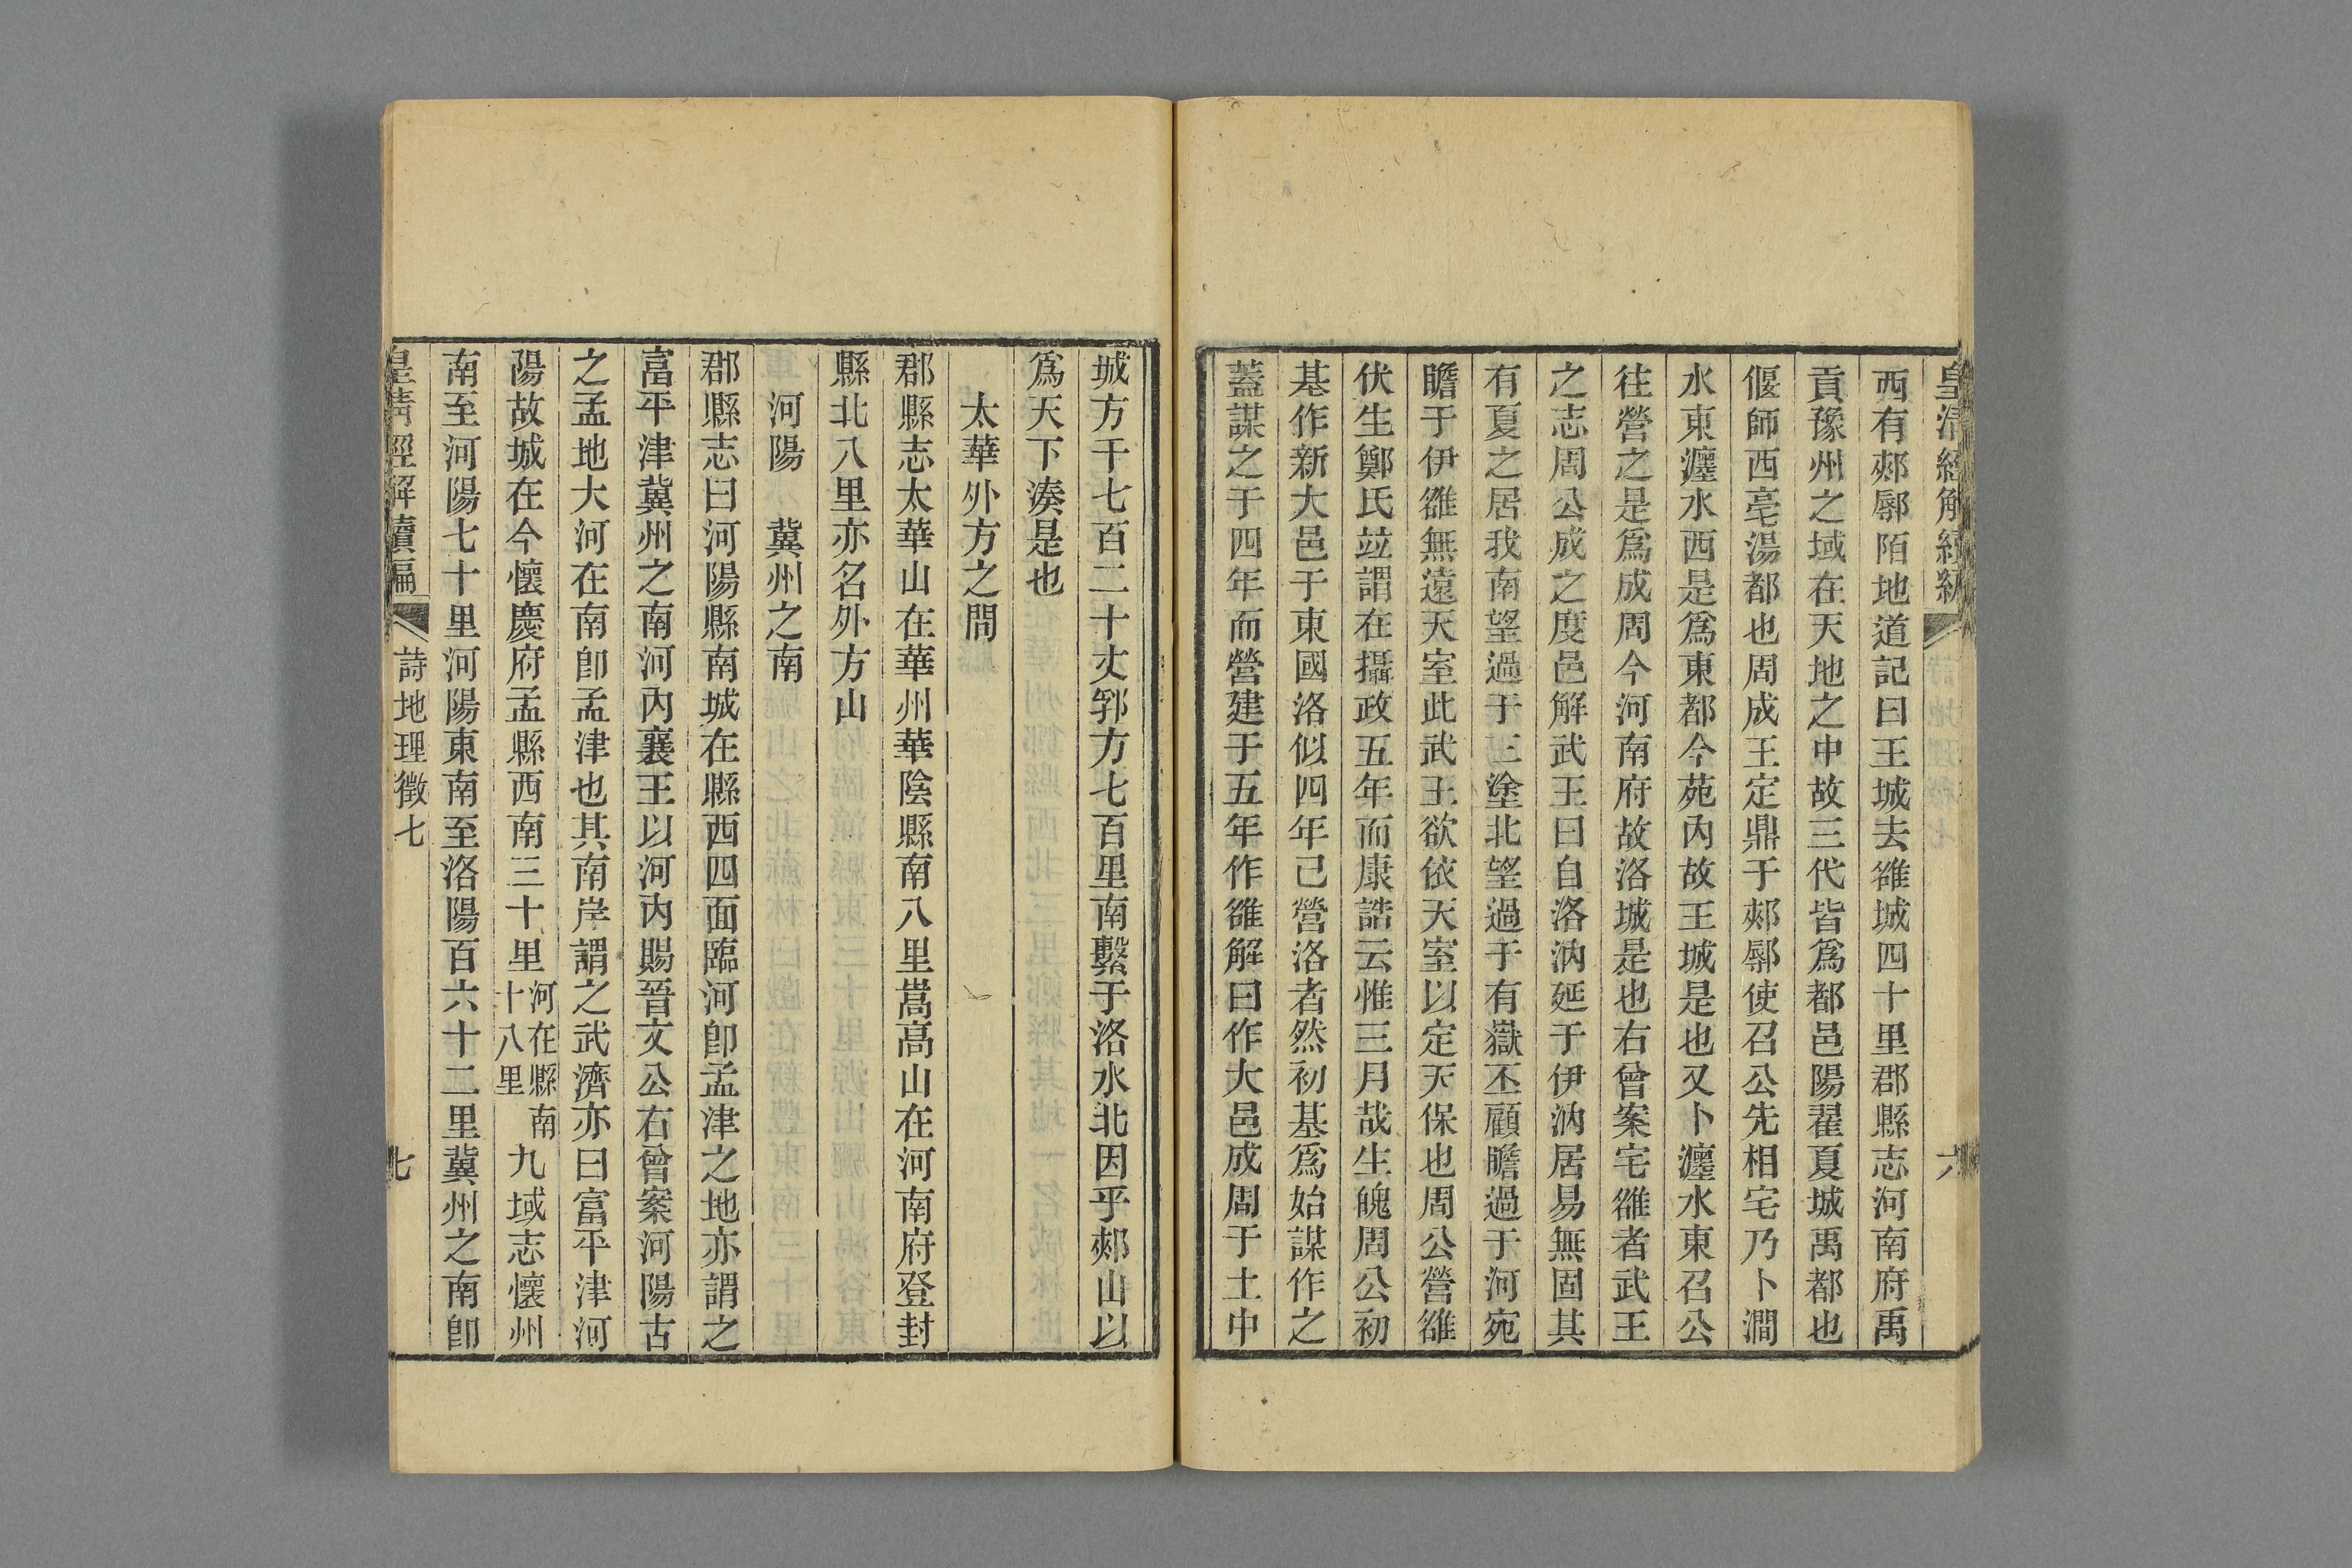 皇清經解續編
六
西有郟鄏陌地道記曰王城去雒城四十里郡縣志河南府禹
貢豫州之域在天地之中故三代皆爲都邑陽翟夏城禹都也
偃師西亳湯都也周成王定鼎于郟鄏使召公先相宅乃卜澗
水東瀍水西是爲東都今苑內故王城是也又卜瀍水東召公
往營之是爲成周今河南府故洛城是也右曾案宅雒者武王
之志周公成之度邑解武王曰自洛汭延于伊汭居易無固其
有夏之居我南望過于三塗北望過于有嶽丕顧瞻過于河宛
瞻于伊雒無遠天室此武王欲依天室以定天保也周公營雒
伏生鄭氏竝謂在攝政五年而康誥云惟三月哉生魄周公初
基作新大邑于東國洛似四年己營洛者然初基爲始謀作之
蓋謀之于四年而營建于五年作雒解曰作大邑成周于土中
城方千七百二十丈郛方七百里南繫于洛水北因乎郟山以
爲天下湊是也
太華外方之閒
郡縣志太華山在華州華陰縣南八里嵩高山在河南府登封
縣北八里亦名外方山
河陽　冀州之南
郡縣志曰河陽縣南城在縣西四面臨河卽孟津之地亦謂之
富平津冀州之南河內襄王以河內賜晉文公右曾案河陽古
之孟地大河在南卽孟津也其南岸謂之武濟亦曰富平津河
陽故城在今懷慶府孟縣西南三十里河在縣南十八里九域志懷州
南至河陽七十里河陽東南至洛陽百六十二里冀州之南卽
皇清經解續編
詩地理徵七
七